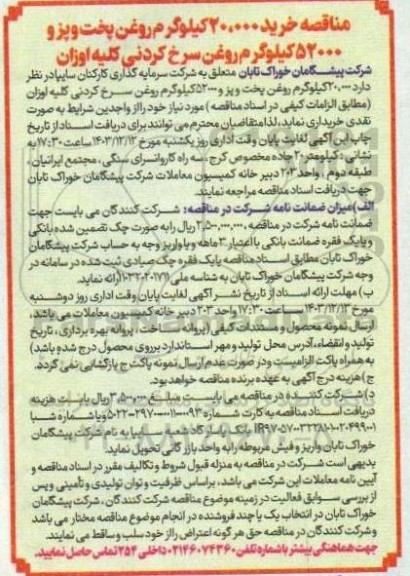 مناقصه خرید ۲۰،۰۰۰ کیلوگرم روغن پخت و پز و
۵۲۰۰۰ کیلوگرم روغن سرخ کردنی کلیه اوزان
شرکت پیشگامان خوراک تابان متعلق به شرکت سرمایه گذاری کارکنان سایپا در نظر
دارد ۲۰،۰۰۰ کیلوگرم روغن پخت و پز و ۵۲۰۰۰ کیلوگرم روغن سرخ کردنی کلیه اوزان
(مطابق الزامات کیفی در اسناد مناقصه) مورد نیاز خود را از واجدین شرایط به صورت
نقدی خریداری نماید، لذا متقاضیان محترم می توانند برای دریافت اسناد از تاریخ
چاپ این آگهی لغایت پایان وقت اداری روز یکشنبه مورخ ۱۴۰۳/۱۲/۱۲ ساعت ۱۷:۳۰ به
نشانی: کیلومتر ۲۰ جاده مخصوص کرج، سه راه کاروانسرای سنگی، مجتمع ایرانیان،
طبقه دوم، واحد ۲۰۳ دبیر خانه کمیسیون معاملات شرکت پیشگامان خوراک تابان
جهت دریافت اسناد مناقصه مراجعه نمایند.
الف) میزان ضمانت نامه شرکت در مناقصه: شرکت کنندگان می بایست جهت
ضمانت نامه شرکت در مناقصه، ۲،۵۰۰،۰۰۰،۰۰۰ ریال را به صورت چک تضمین شده بانکی
و یا یک فقره ضمانت بانکی با اعتبار ۳ ماهه و یا واریز وجه به حساب شرکت پیشگامان
خوراک تابان مطابق اسناد مناقصه یا یک فقره چک صیادی ثبت شده در سامانه در
وجه شرکت پیشگامان خوراک تابان به شناسه ملی ارائه نماید.
ب) مهلت ارائه اسناد از تاریخ نشر آگهی لغایت پایان وقت اداری روز دوشنبه
مورخ ۱۴۰۳/۱۲/۱۳ ساعت ۱۷:۳۰ واحد ۲۰۳ دبیر خانه کمیسیون معاملات می باشد.
ارسال نمونه محصول و مستندات کیفی (پروانه ساخت، پروانه بهره برداری، تاریخ
تولید و انقضاء، آدرس محل تولید و مهر استاندارد بر روی محصول درج شده باشد)
به همراه پاکت الزامیست و در صورت عدم ارسال نمونه پاکت ج بازگشایی نمی گردد.
ج) هزینه درج آگهی به عهده برنده مناقصه خواهد بود.
د) شرکت کننده در مناقصه می بایست مبلغ ۳،۵۰۰،۰۰۰ ریال بابت هزینه
دریافت اسناد مناقصه به کارت شماره و یا شماره شبا
بانک پاسارگاد شعبه سایپا به نام شرکت پیشگامان
خوراک تابان واریز و فیش مربوطه را به واحد بازرگانی تحویل نماید.
بدیهی است شرکت در مناقصه به منزله قبول شروط و تکالیف مقرر در اسناد مناقصه و
آیین نامه معاملات این شرکت می باشد، بر اساس ظرفیت و توان تولیدی و تأمینی و پس
از بررسی سوابق فعالیت در زمینه موضوع مناقصه شرکت کنندگان، شرکت پیشگامان
خوراک تابان در انتخاب یک یا چند فروشنده در انجام موضوع مناقصه مختار می باشد
و شرکت کنندگان در مناقصه حق هر گونه اعتراض را از خود سلب و ساقط می نمایند.
جهت هماهنگی بیشتر با شماره تلفن ۰۲۱۴۶۰۷۴۳۶۰ داخلی ۲۵۴ تماس حاصل نمایید.